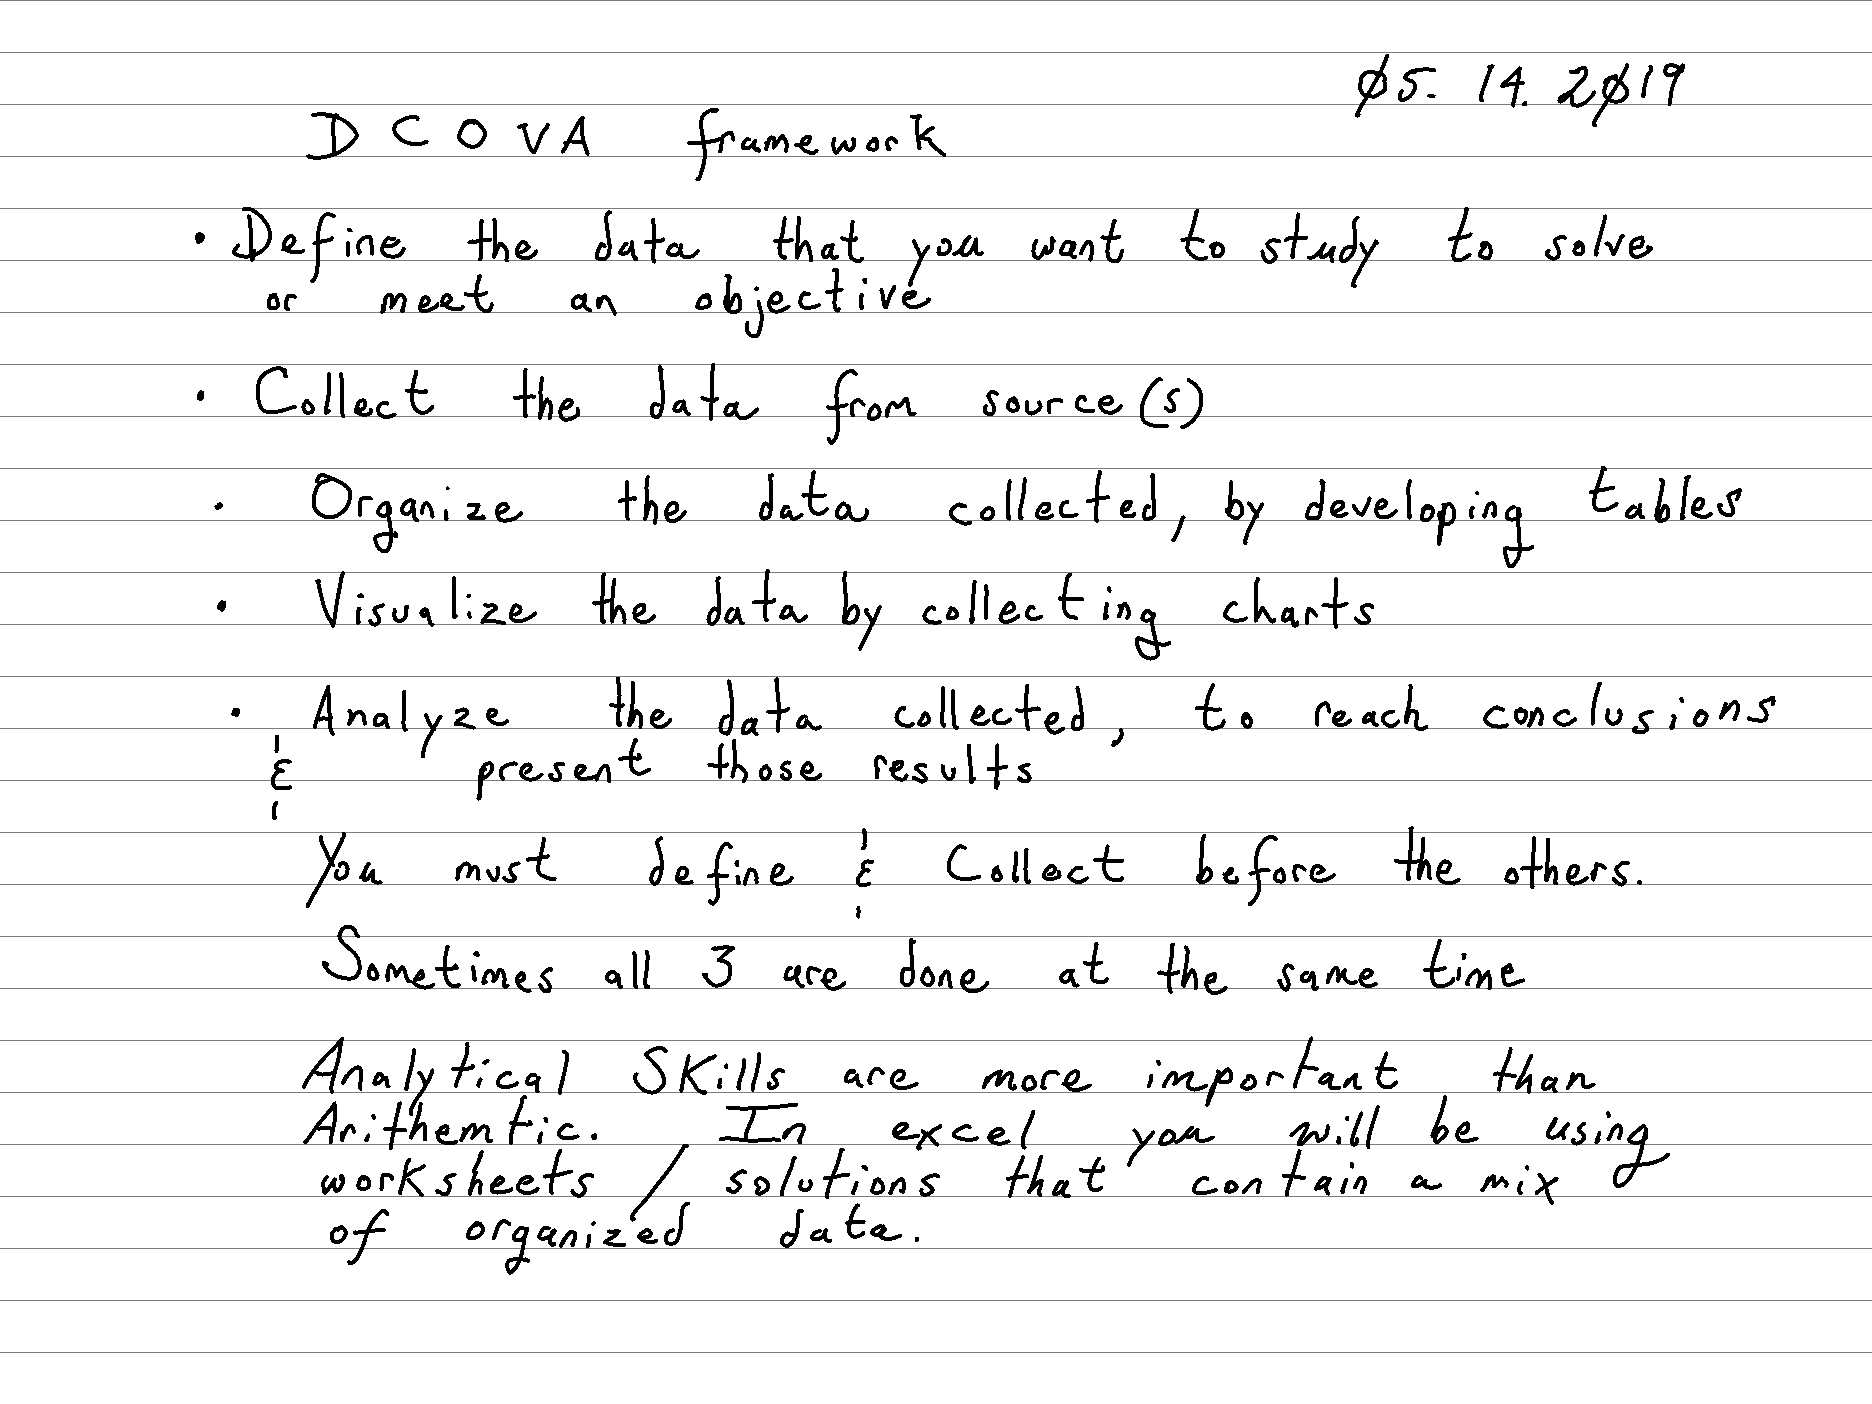 05. 14. 2019
DCOVA framework
• Define the data that you want to study to solve
or meet an objective
• Collect the data from source(s)
• Organize the data collected, by developing tables
• Visualize the data by collecting charts
• Analyze the data collected, to reach conclusions
& present those results
You must define & Collect before the others.
Sometimes all 3 are done at the same time
Analytical Skills are more important than
Arithemtic. In excel you will be using
worksheets / solutions that contain a mix
of organized data.